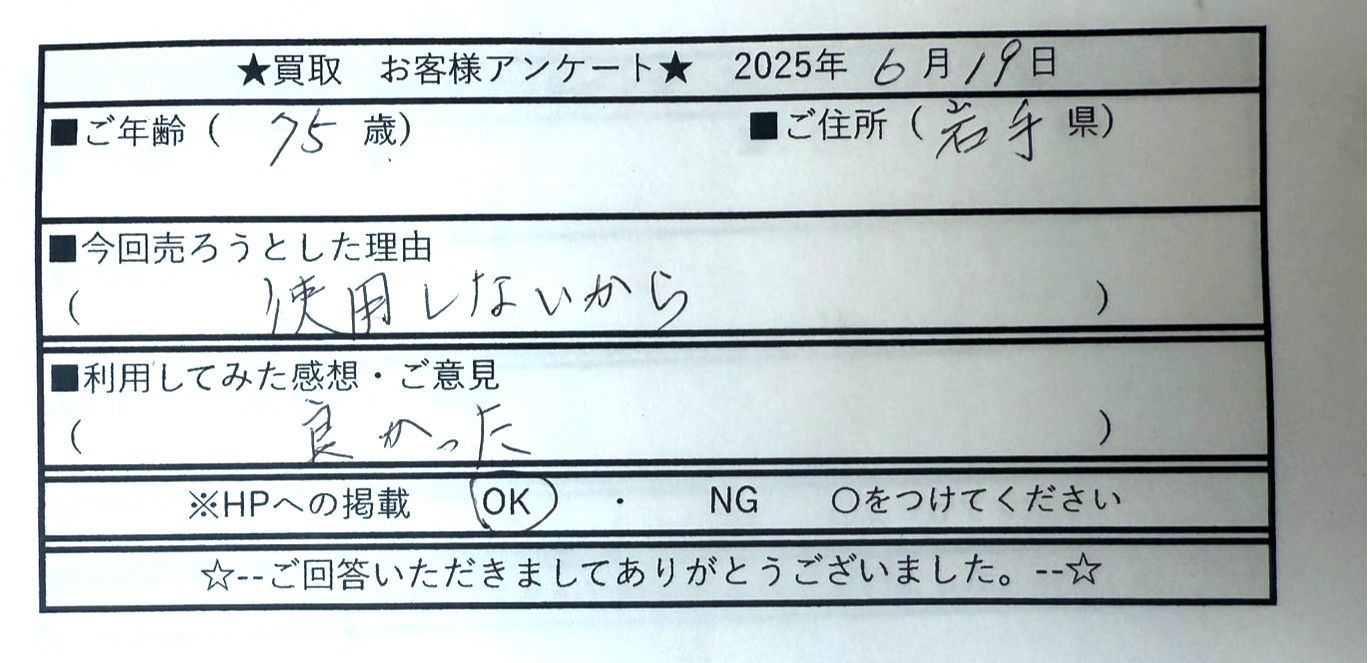 ★買取　お客様アンケート★　2025年 6 月 19 日
■ご年齢（ 75 歳）　■ご住所（ 岩手 県）
■今回売ろうとした理由
（ 使用しないから ）
■利用してみた感想・ご意見
（ 良かった ）
※HPへの掲載　OK　・　NG　〇をつけてください
☆--ご回答いただきましてありがとうございました。--☆